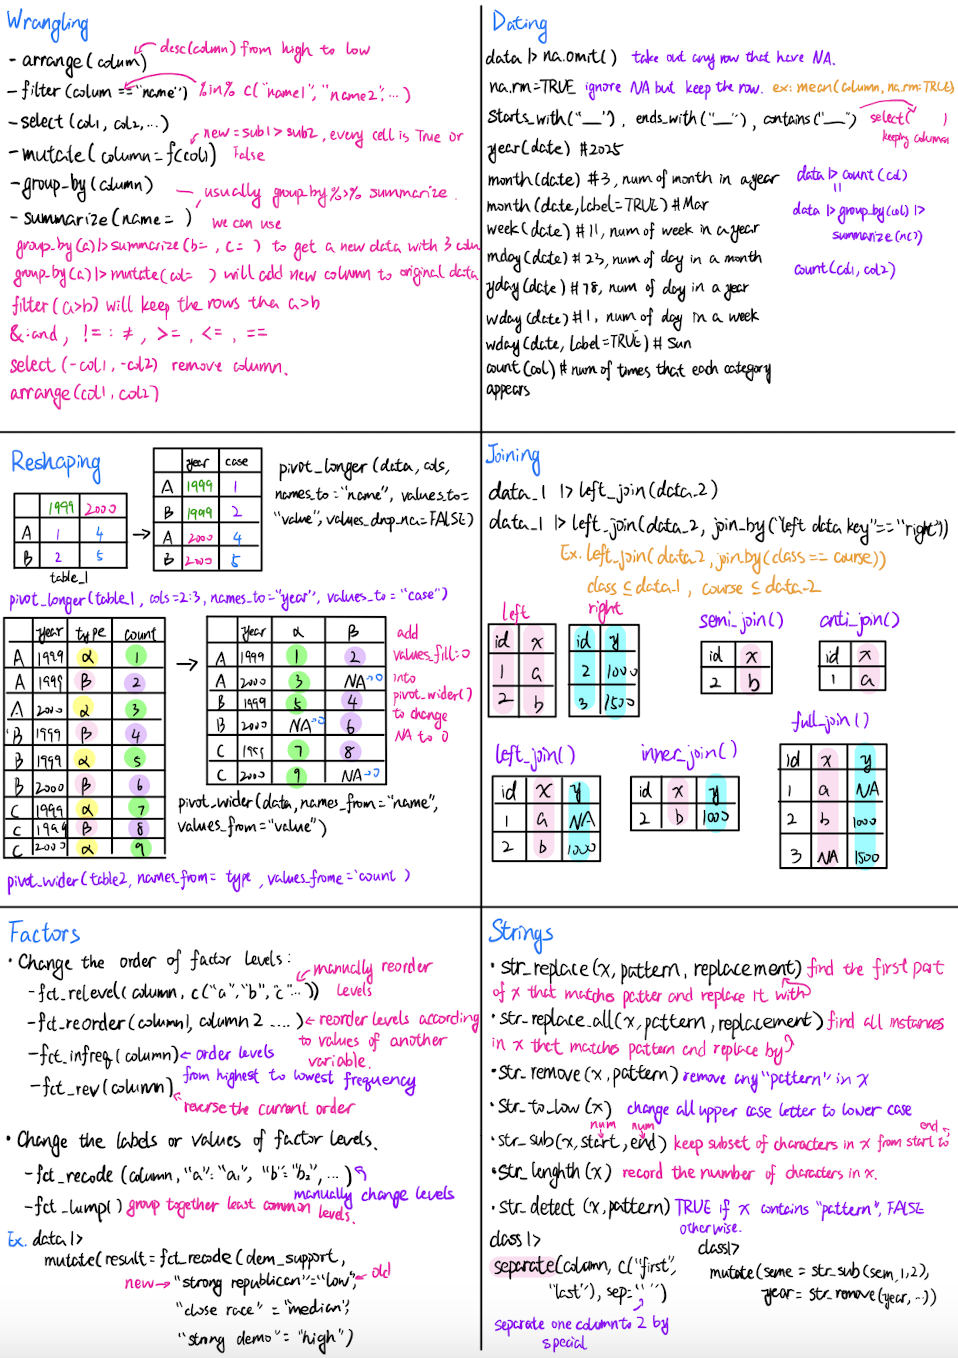 Wrangling
- arrange(colum) desc(column) from high to low
- filter(colum == "name") %in% c("name1", "name2", ...)
- select(col1, col2, ...)
- mutate( column = f(col1) new = sub1 > sub2, every cell is True or False
- group_by(column)
- summarize(name= ) usually group_by %>% summarize.
we can use
group_by(a) |> summarize(b= , c= ) to get a new data with 3 colum
group_by(a) |> mutate(col= ) will add new column to original data
filter(a>b) will keep the rows tha a>b
&:and, != : ≠, >=, <=, ==
select(-col1, -col2) remove column.
arrange(col1, col2)
Dating
data |> na.omit() take out any row that have NA.
na.rm=TRUE ignore NA but keep the row. ex: mean(column, na.rm=TRUE)
Starts_with("__"), ends_with("__"), contains("__") select( )
keeping columns
year(date) #2025
month(date) #3, num of month in a year
month(date, label=TRUE) #Mar
week(date) #11, num of week in a year
mday(date) #23, num of day in a month
yday(date) #78, num of day in a year
wday(date) #1, num of day in a week
wday(date, label=TRUE) # Sun
count(col) # num of times that each category
appears
data |> count(col)
=
data |> group_by(col) |>
summarize(n())
count(col1, col2)
Reshaping
1999 2000
A 1 4
B 2 5
table_1
year case
A 1999 1
B 1999 2
A 2000 4
B 2000 5
pivot_longer(data, cols,
names_to="name", values_to=
"value", values_drop_na=FALSE)
pivot_longer(table_1, cols=2:3, names_to="year", values_to="case")
year type count
A 1999 α 1
A 1999 β 2
A 2000 α 3
B 1999 β 4
B 1999 α 5
B 2000 β 6
C 1999 α 7
C 1999 β 8
C 2000 α 9
year α β
A 1999 1 2
A 2000 3 NA→0
B 1999 5 4
B 2000 NA→0 6
C 1999 7 8
C 2000 9 NA→0
add
values_fill=0
into
pivot_wider()
to change
NA to 0
pivot_wider(data, names_from="name",
values_from="value")
pivot_wider(table2, names_from= type, values_frome='count')
Joining
data_1 |> left_join(data_2)
data_1 |> left_join(data_2, join_by("left data key"=="right"))
Ex. left_join(data2, join_by(class == course))
class ⊆ data_1, course ⊆ data_2
left
id x
1 a
2 b
right
id y
2 1000
3 1500
semi_join()
id x
2 b
anti_join()
id x
1 a
left_join()
id x y
1 a NA
2 b 1000
inner_join()
id x y
2 b 1000
full_join()
id x y
1 a NA
2 b 1000
3 NA 1500
Factors
• Change the order of factor levels:
- fct_relevel(column, c("a","b","c"...)) manually reorder
levels
- fct_reorder(column1, column2 ....) reorder levels according
to values of another
variable.
- fct_infreq(column) order levels
from highest to lowest frequency
- fct_rev(column)
reverse the current order
• Change the labels or values of factor levels.
- fct_recode (column, "a"="a1", "b"="b2", ...)
manually change levels
- fct_lump() group together least common
levels.
Ex. data |>
mutate(result = fct_recode(dem_support,
new→ "strong republican"="low", ←old
"close race" = "median",
"strong demo" = "high")
Strings
• str_replace(x, pattern, replacement) find the first part
of x that matches patter and replace it with
• str_replace_all(x, pattern, replacement) find all instances
in x that matches pattern and replace by
• str_remove(x, pattern) remove any "pattern" in x
• Str_to_low(x) change all upper case letter to lower case
num num
• str_sub(x, start, end) keep subset of characters in x from start to end.
• str_lenghth(x) record the number of characters in x.
• str_detect (x, pattern) TRUE if x contains "pattern", FALSE
otherwise.
class |>
separate(column, c("first",
"last"), sep=" ")
separate one column to 2 by
special
class |>
mutate(seme = str_sub(sem, 1, 2),
year = str_remove(year, ...))